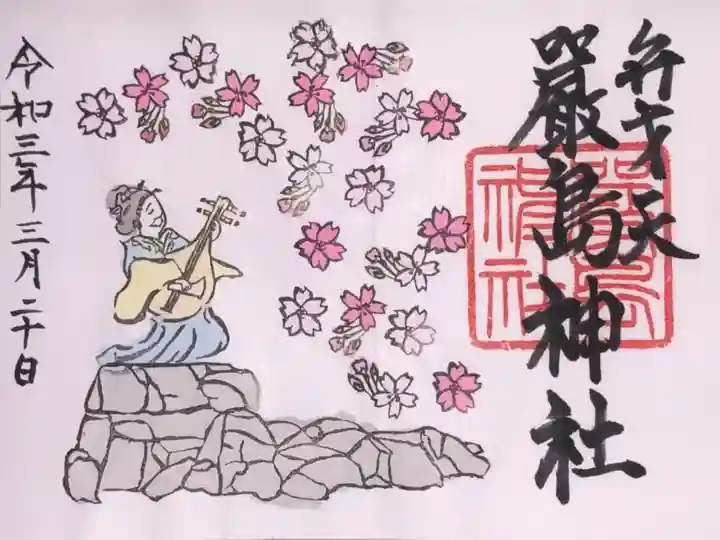 弁才天
嚴島神社
嚴島神社
令和三年三月二十日